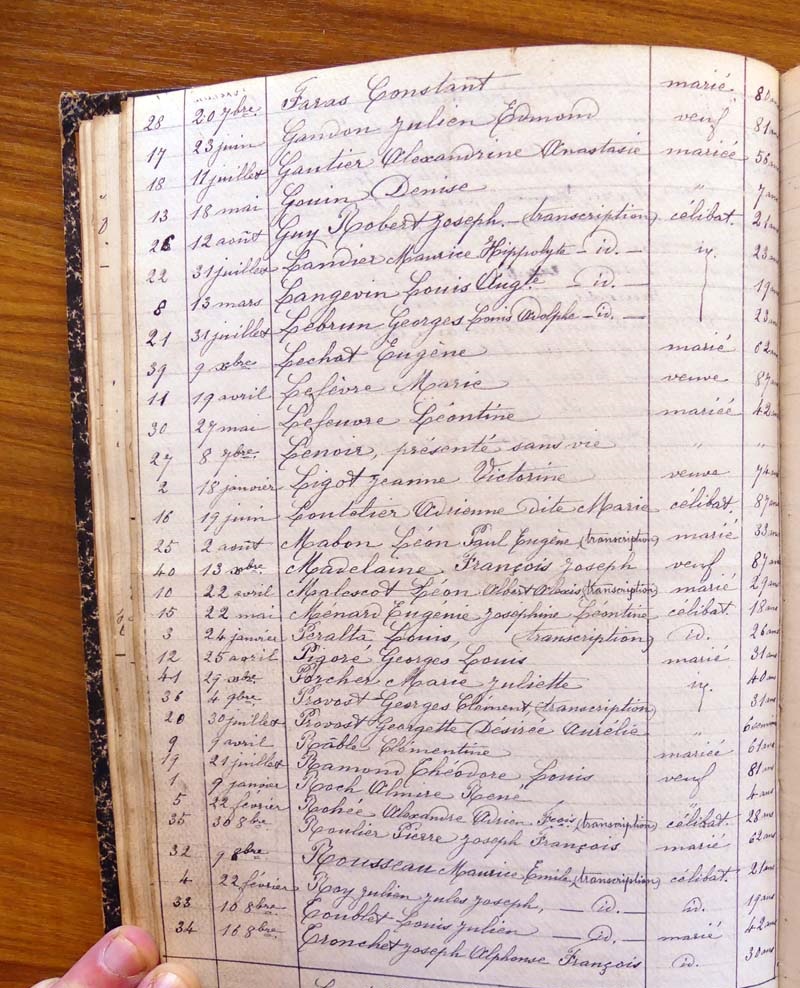 28 20 7bre. Faras Constant marié 80 ans
17 23 juin Gandon Julien Edmond veuf 81 ans
18 11 juillet Gautier Alexandrine Anastasie mariée 56 ans
13 18 mai Gouin Denise " 7 ans
26 12 août Guy Robert Joseph. (transcription) célibat. 21 ans
22 31 juillet Landier Maurice Hippolyte - id. - 23 ans
8 13 mars Langevin Louis Augte - id. - 19 ans
21 31 juillet Lebrun Georges Louis Adolphe - id. - 23 ans
39 9 xbre. Lechat Eugène marié 62 ans
11 19 avril Lefèvre Marie veuve 87 ans
30 27 mai Lefeuvre Léontine mariée 42 ans
27 8 7bre. Lenoir, présenté sans vie " "
2 18 janvier Ligot Jeanne Victorine veuve 74 ans
16 19 juin Loutelier Adrienne dite Marie célibat. 87 ans
25 2 août Mabon Léon Paul Eugène (transcription) marié 33 ans
40 13 xbre Madelaine François Joseph veuf 87 ans
10 22 avril Malescot Léon Albert Alexis (transcription) marié 29 ans
15 22 mai Ménard Eugénie Joséphine Léontine célibat. 18 ans
3 24 janvier Peralta Louis, (transcription) id. 26 ans
12 25 avril Pigoré Georges Louis marié 31 ans
41 29 xbre Porcher Marie Juliette 40 ans
36 4 9bre. Provost Georges Clément (transcription) 31 ans
20 30 juillet Provost Georgette Désirée Aurélie "
9 9 avril Râble Clémentine mariée 61 ans
19 21 juillet Ramond Théodore Louis veuf 81 ans
1 9 janvier Roch Almire René " 4 ans
5 22 février Rohée Alexandre Adrien Fçois (transcription) célibat. 28 ans
35 30 8bre Roulier Pierre Joseph François marié 62 ans
32 9 8bre Rousseau Maurice Emile (transcription) célibat. 21 ans
4 22 février Roy Julien Jules Joseph, - id. - id. 19 ans
33 10 8bre Toublet Louis Julien - id. - marié 42 ans
34 16 8bre. Tronchet Joseph Alphonse François id. 30 ans